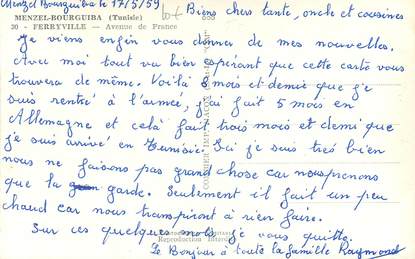 Menzel Bourguiba le 17/5/59
Biens chers tante, oncle et cousines
MENZEL-BOURGUIBA (Tunisie)
20 - FERRYVILLE — Avenue de France
Je viens enfin vous donner de mes nouvelles.
Avec moi tout va bien espérant que cette carte vous
trouvera de même. Voilà 8 mois et demie que je
suis rentré à l'armée, j'ai fait 5 mois en
Allemagne et celà fait trois mois et demi que
je suis arrivé en Tunisie. Ici je suis tres bien
nous ne faisons pas grand chose car nous prenons
que la garde. Seulement il fait un peu
chaud car nous transpiront à rien faire.
Sur ces quelques mots je vous quitte.
Reproduction
Le Bonjour à toute la famille Raymond